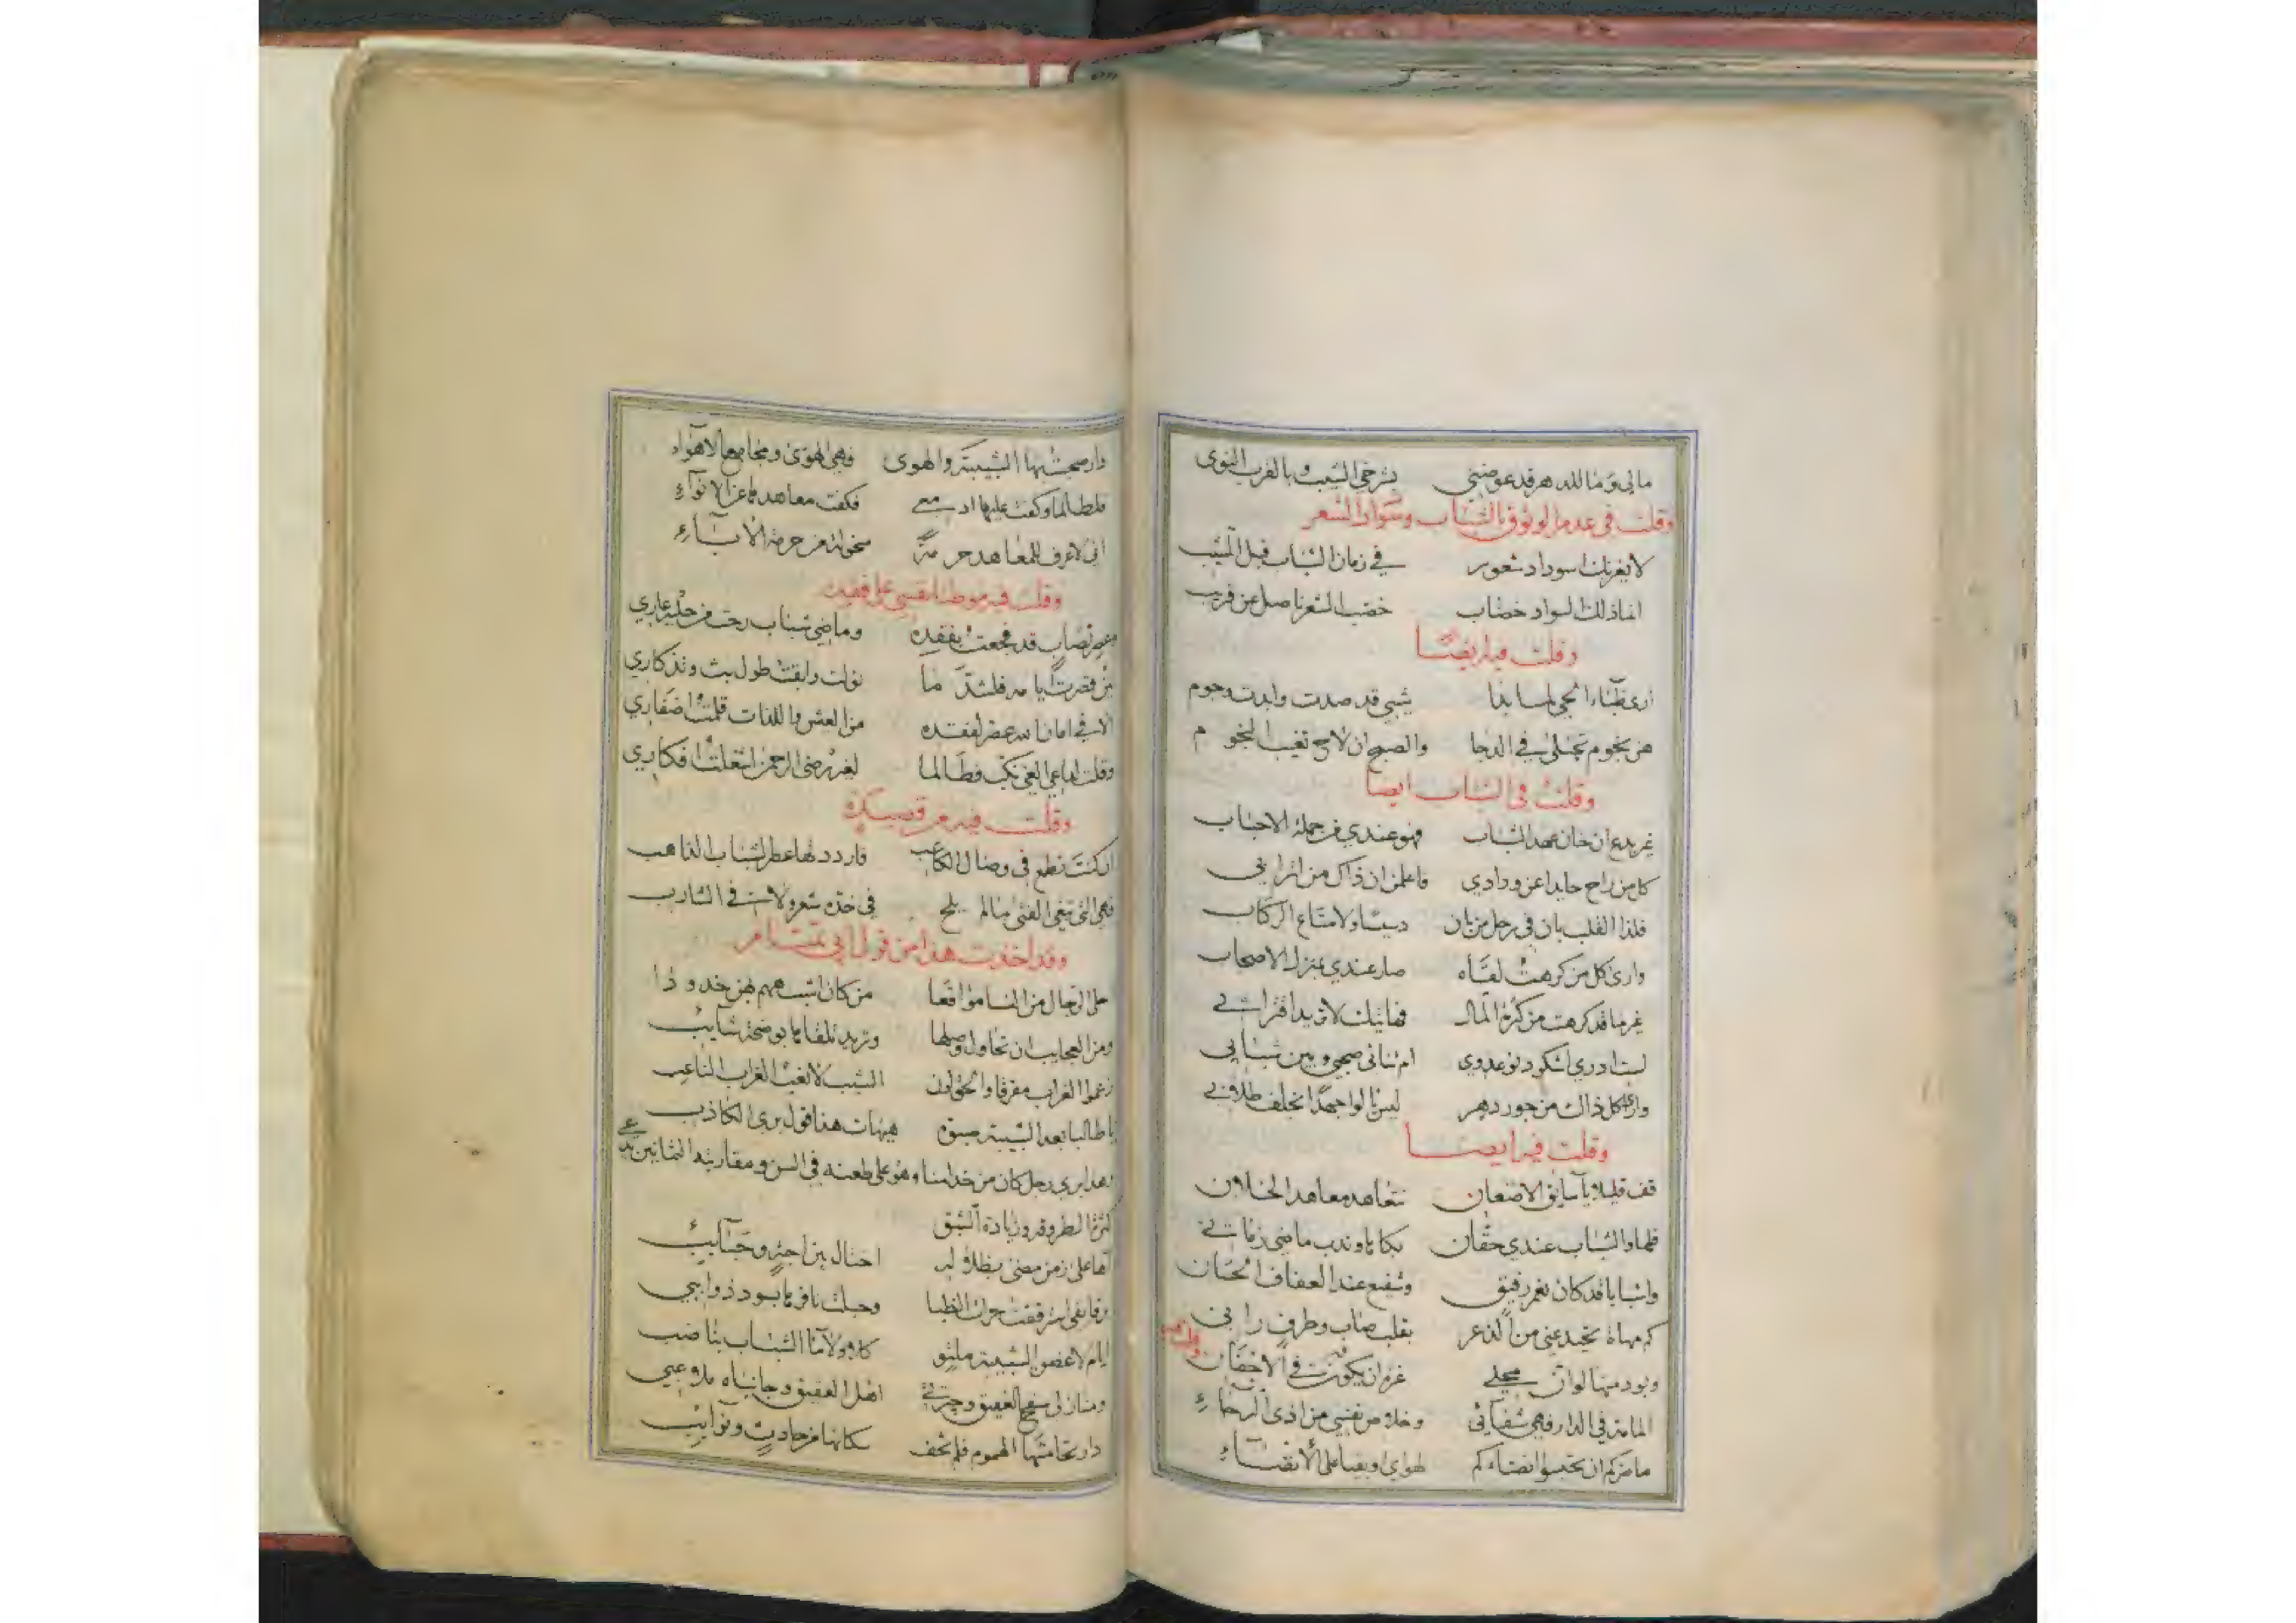 مالي وما للدهر قد عوضني بشرخي الشيب وبالقرب النوى
وقلت في عدم الوثوق بالشباب وسواد الشعر
لا يغرنك اسوداد شعور في زمان الشباب قبل المشيب
انما ذلك السواد خضاب خضب الشعر ناصل عن قريب
وقلت فيه ايضا
ارى ظباء الحي لما بدا شيبي قد صدت وابدت وجوم
هن نجوم تجتلى في الدجا والصبح ان لاح تغيب النجوم
وقلت في الشباب ايضا
غير بدع ان خان عهد الشباب فهو عندي من جملة الاحباب
كل من راح حايدا عن ودادي فاعلمن ان ذاك من اترابي
فلذا القلب بان في رحل من بان دبيبا ولا متاع الركاب
وارى كل من كرهت لقاه صار عندي بمنزل الاصحاب
غير ما قد كرهت من كثرة المال فهاتيك لا تريد اقترابي
لست ادري اشكو دنو عدوي ام تنائي صحبي وبين شبابي
وارى كل ذاك من جور دهر ليس يالو جهدا بخلف طلابي
وقلت فيه ايضا
قف قليلا يا سايق الاضعان نتعاهد معاهد الخلان
فلها والشباب عندي حقان بكاها وندب ماضي زماني
واشبابا قد كان نعم رفيق وشفيع عند العفاف الحسان
كم مهاة تحيد عني من الذعر بقلب صاب وطرف راني
وبود منها لو ان محلي غير ان يكون في الاجفان
المامة في الدار فهي شفائي وخلاص نفسي من اذى البرحاء
ما ضركم ان تحبسوا انضاءكم لهواي او بقيا على الانضاء
دار صحبت بها الشبيبة والهوى فهي الهوى ومجامع الاهواء
فلطالما وكفت عليها ادمعي فكفت معاهدها عن الانواء
اني لاعرف للمعاهد حرمة منحولة من حرمة الاباء
وقلت فيه موطنا نفسي على فقده
وعصر تصاب قد فجعت بفقده وماضي شباب رحت من حليه عاري
لئن قصرت ايامه فلشد ما تولت وابقت طول بث وتذكاري
الا في امان الله عصر لفقده من العيش واللذات قلمت اضفاري
وقلت لداعي الغي نكب فطالما لغير رضى الرحمن اشعلت افكاري
وقلت فيه من قصيدة
ان كنت تطمع في وصال الكاعب فاردد لها عصر الشباب الذاهب
فهي التي تبغي الفتى مالم يلح في خده شعر ولا في الشارب
وقد اخذت هذا من قول ابي تمام
احلى الرجال من النسا مواقعا من كان اشبههم بهن خدودا
ومن العجايب ان تحاول وصلها وتريد تلقاها بوضحة شايب
زعموا الغراب مفرقا والحق لون الشيب لا نغب الغراب الناعب
يا طالبا بعد الشبيبة صبوة هيهات هذا قول بري الكاذب
بعد ابري رجل كان من خدامنا وهو على طعنه في السن ومقاربته الثمانين يدعي
كثرة الطروقة وزيادة الشبق
آها على زمن مضى بظلاله احتال بين احبة وحبايب
ايام لا غصن الشبيبة ملتو كلا ولا ماء الشباب بناضب
ومنازلي سفح العقيق وجيرتي اهل العقيق وجانباه ملاعبي
دار تحامتها الهموم فلم تخف سكانها من حادث ونوايب